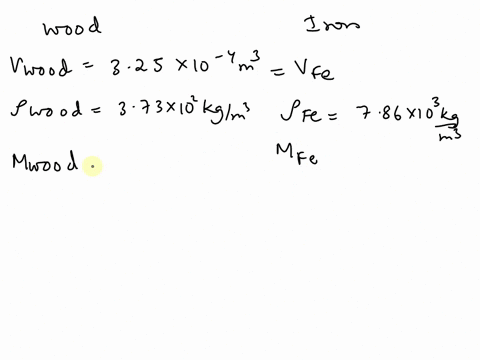 wood Iron
Vwood = 3.25 ×10⁻⁴ m³ = VFe
ρwood = 3.73×10² kg/m³ ρFe = 7.86×10³ kg/m³
Mwood MFe